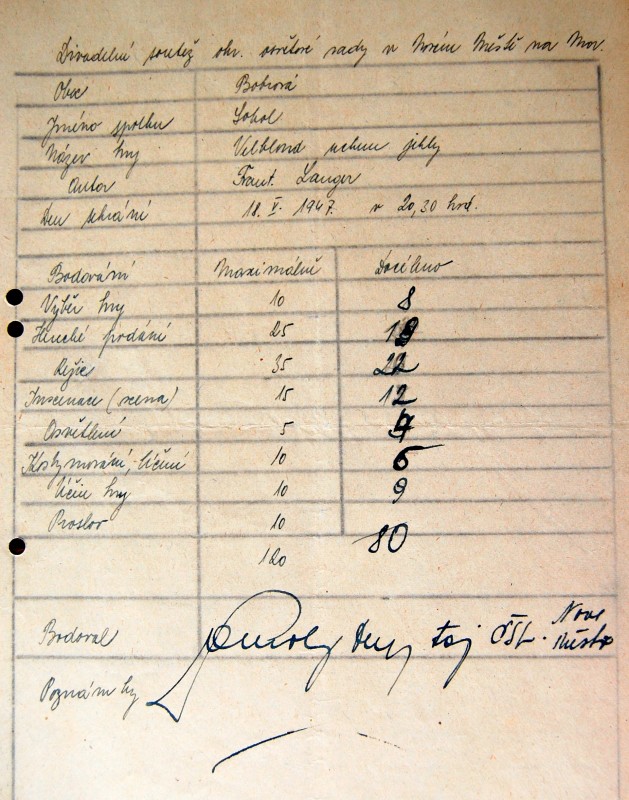 Divadelní soutěž okr. osvětové rady v Novém Městě na Mor.
Obec Bobrová
Jméno spolku Sokol
Název hry Velbloud uchem jehly
Autor Frant. Langer
Den sehrání 18. V. 1947. v 20,30 hod.
Bodování Maximálně Docíleno
Výběr hry 10 8
Herecké podání 25
Režie 35 22
Inscenace (scena) 15 12
Osvětlení 5
Kostymování, líčení 10 6
Účin hry 10 9
Proslov 10
120 80
Bodoval taj. OŠL. Nové Město
Poznámky